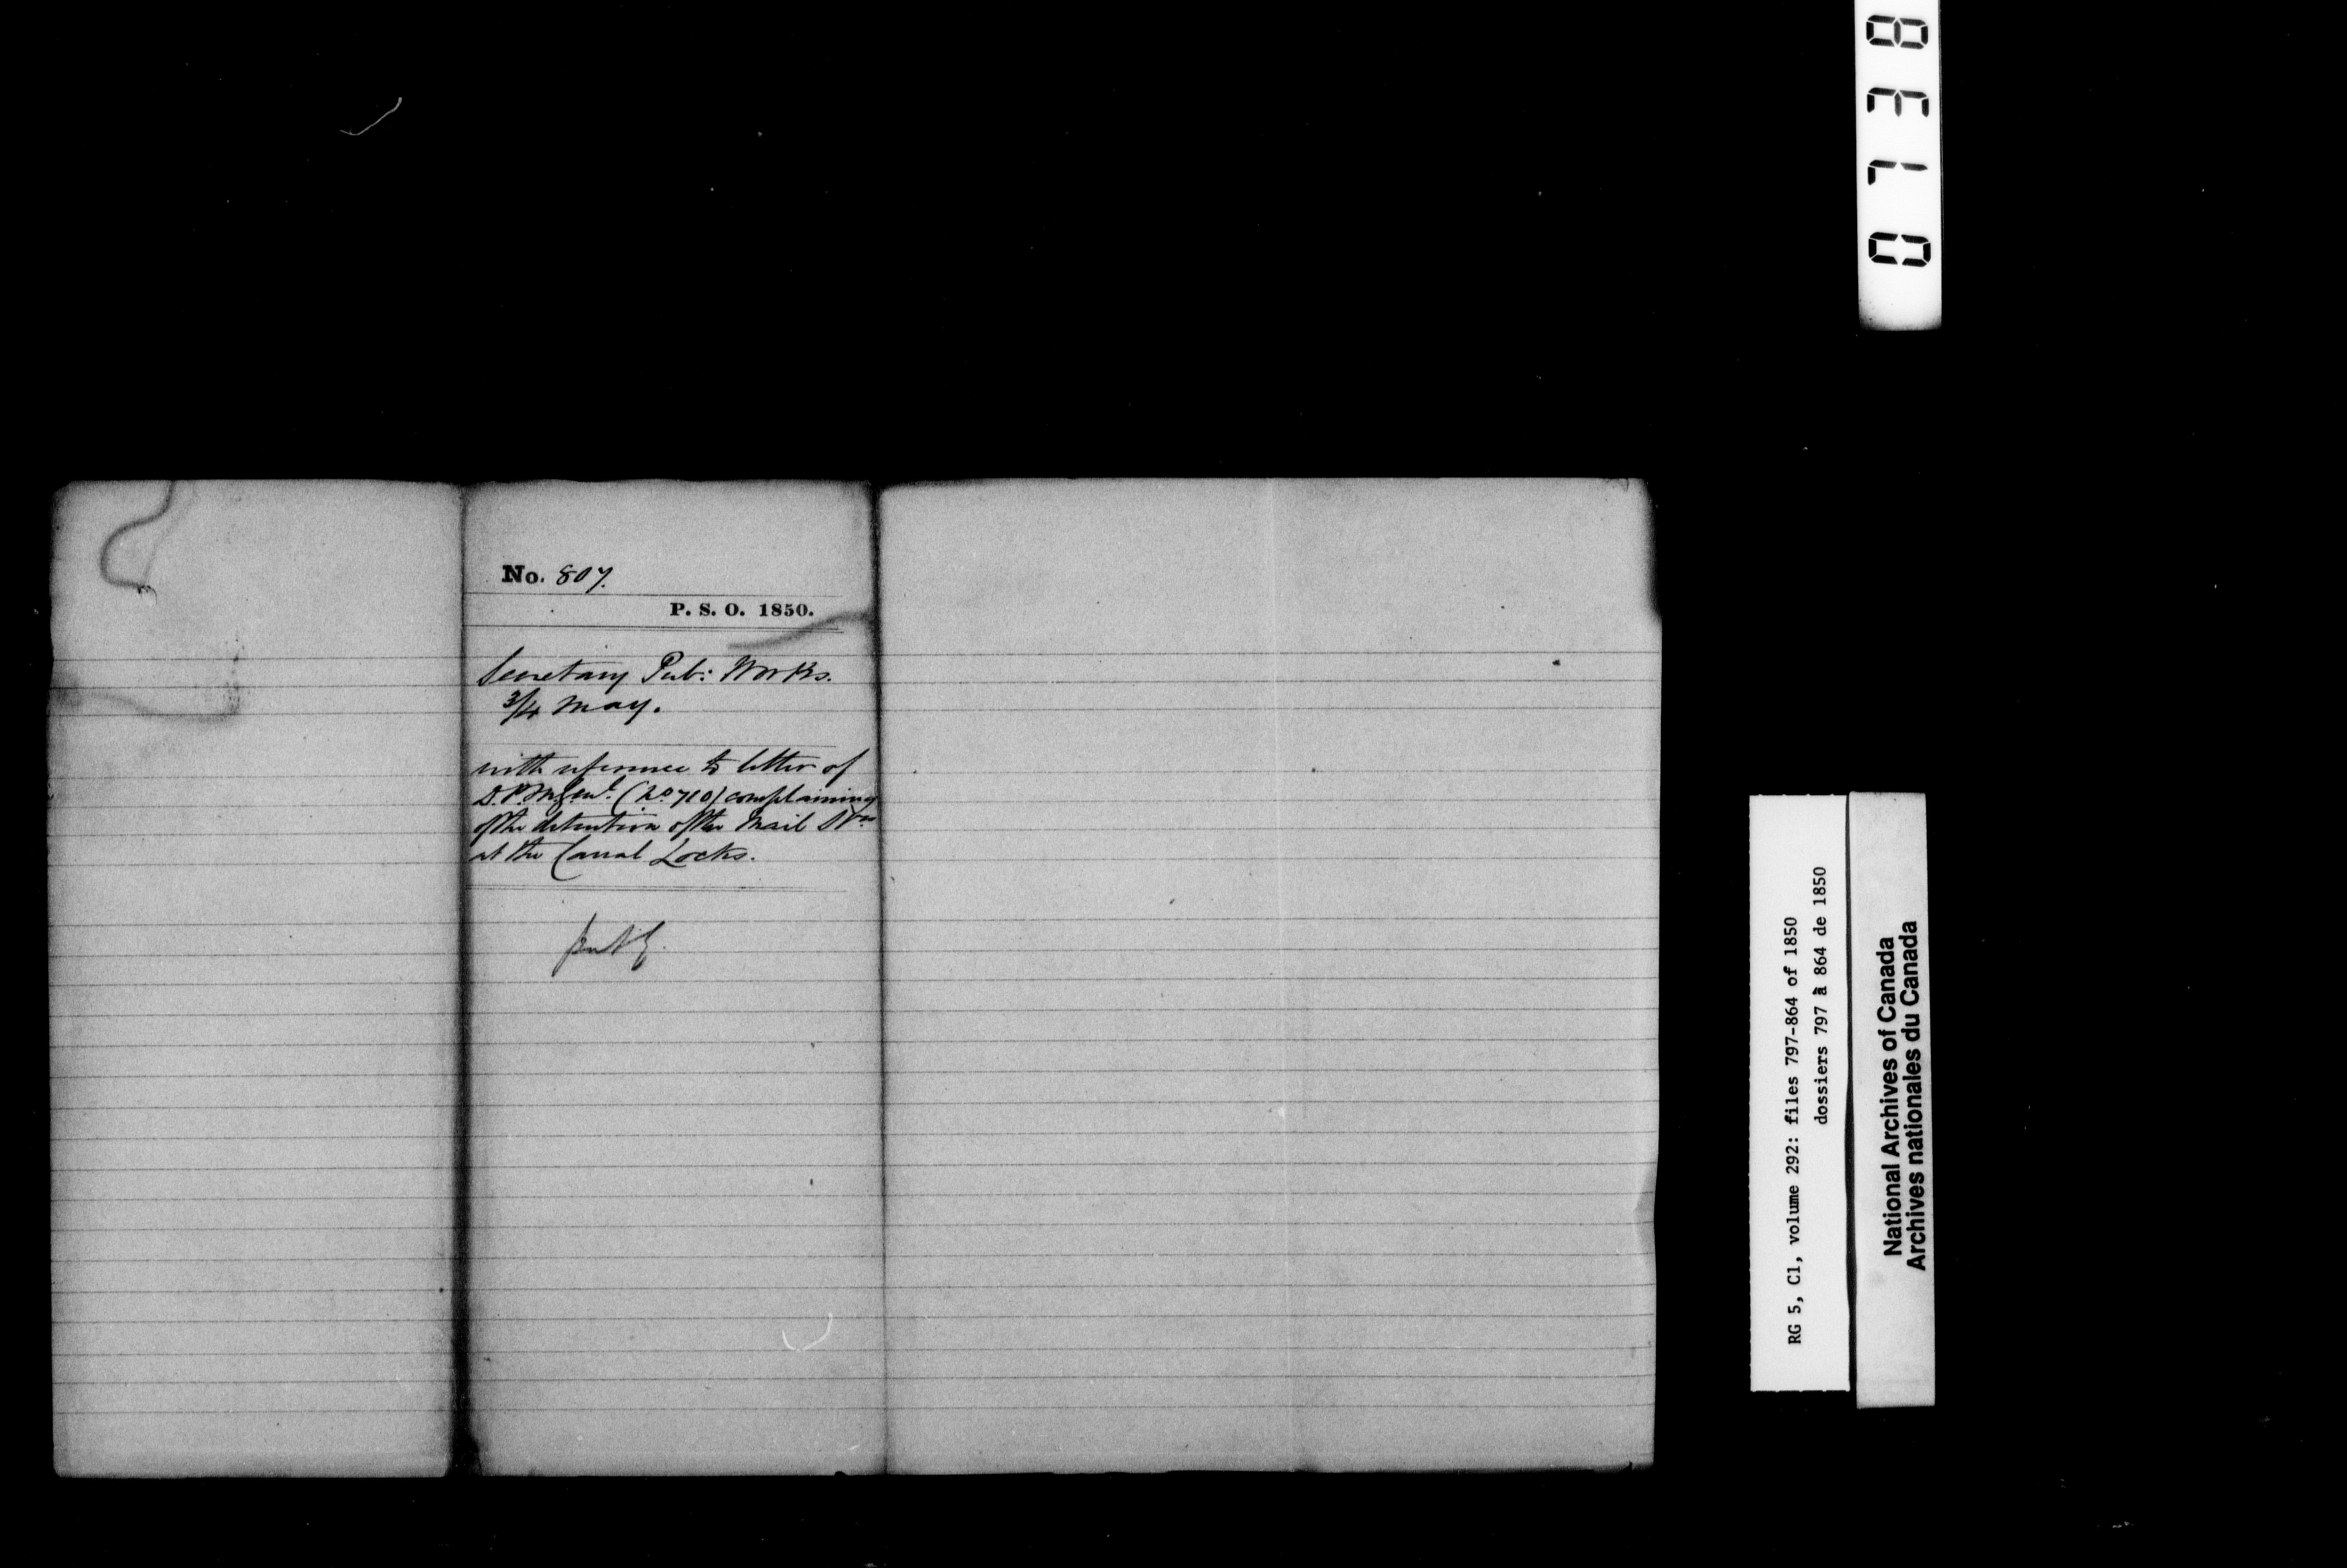 No. 807.
P. S. O. 1850.
Secretary Pub: Works.
3/4 May.
with reference to letter of
D. P. M. Genl. (No 710) complaining
of the detention of the Mail Strs
at the Canal Locks.
0738
RG 5, C1, volume 292: files 797-864 of 1850
dossiers 797 à 864 de 1850
National Archives of Canada
Archives nationales du Canada